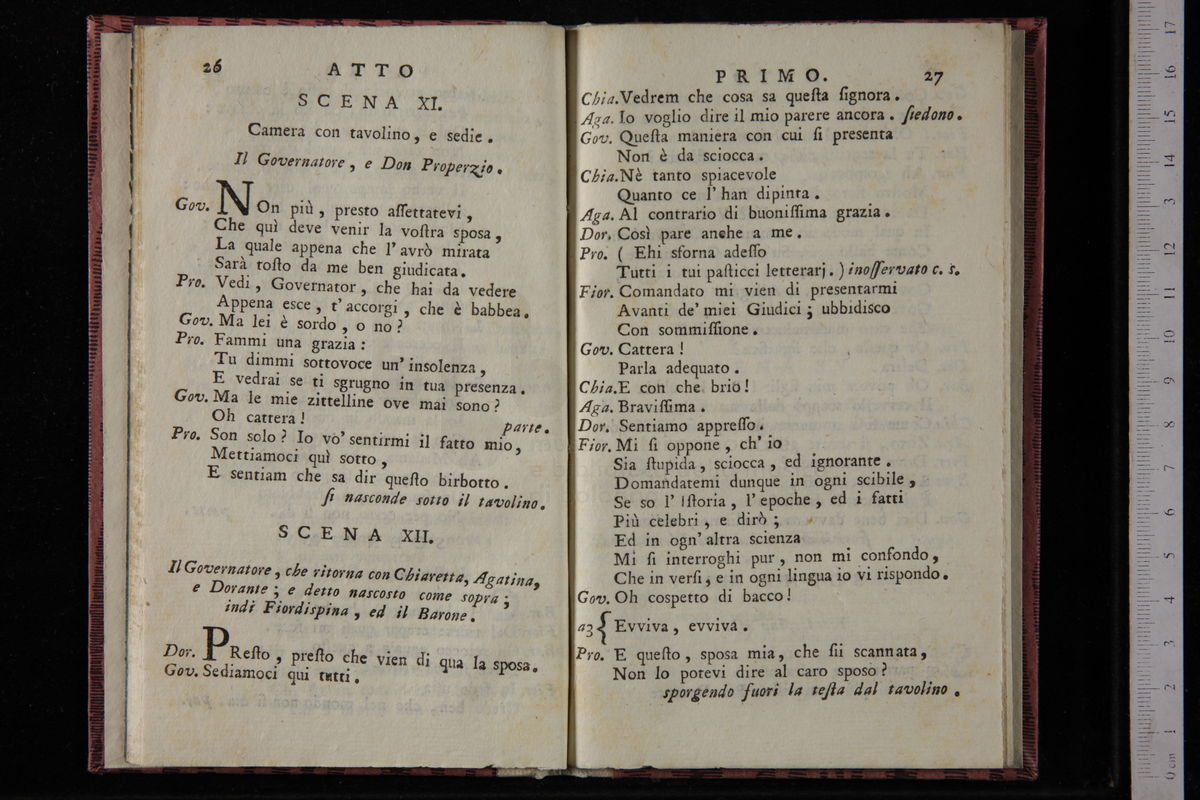 26
ATTO
SCENA XI.
Camera con tavolino, e sedie.
Il Governatore, e Don Properzio.
Gov. NOn più, presto aſſettatevi,
Che quì deve venir la voſtra sposa,
La quale appena che l'avrò mirata
Sarà toſto da me ben giudicata.
Pro. Vedi, Governator, che hai da vedere
Appena esce, t'accorgi, che è babbea.
Gov. Ma lei è sordo, o no?
Pro. Fammi una grazia:
Tu dimmi sottovoce un'insolenza,
E vedrai se ti sgrugno in tua presenza.
Gov. Ma le mie zittelline ove mai sono?
Oh cattera! parte.
Pro. Son solo? Io vò'sentirmi il fatto mio,
Mettiamoci quì sotto,
E sentiam che sa dir queſto birbotto.
ſi nasconde sotto il tavolino.
SCENA XII.
Il Governatore, che ritorna con Chiaretta, Agatina,
e Dorante; e detto nascosto come sopra;
indi Fiordispina, ed il Barone.
Dor. PReſto, preſto che vien di qua la sposa.
Gov. Sediamoci qui tutti.
PRIMO.
27
Chia. Vedrem che cosa sa queſta ſignora.
Aga. Io voglio dire il mio parere ancora. ſiedono.
Gov. Queſta maniera con cui ſi presenta
Non è da sciocca.
Chia. Nè tanto spiacevole
Quanto ce l'han dipinta.
Aga. Al contrario di buoniſſima grazia.
Dor. Così pare anche a me.
Pro. (Ehi sforna adeſſo
Tutti i tui paſticci letterarj.) inoſſervato c. s.
Fior. Comandato mi vien di presentarmi
Avanti de'miei Giudici; ubbidisco
Con sommiſſione.
Gov. Cattera!
Parla adequato.
Chia. E con che briò!
Aga. Braviſſima.
Dor. Sentiamo appreſſo.
Fior. Mi ſi oppone, ch'io
Sia ſtupida, sciocca, ed ignorante.
Domandatemi dunque in ogni scibile,
Se so l'Iſtoria, l'epoche, ed i fatti
Più celebri, e dirò;
Ed in ogn'altra scienza
Mi ſi interroghi pur, non mi confondo,
Che in verſi, e in ogni lingua io vi rispondo.
Gov. Oh cospetto di bacco!
a3 { Evviva, evviva.
Pro. E queſto, sposa mia, che ſii scannata,
Non lo potevi dire al caro sposo?
sporgendo fuori la teſta dal tavolino.
0 cm 1 2 3 4 5 6 7 8 9 10 11 12 13 14 15 16 17